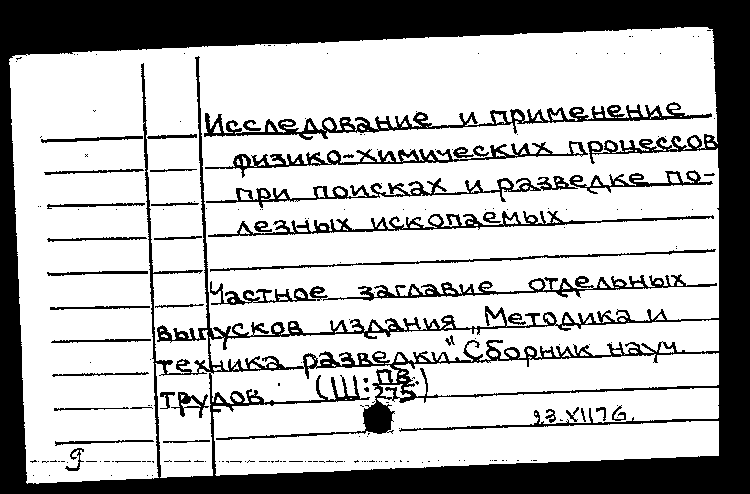 Исследование и применение
физико-химических процессов
при поисках и разведке по-
лезных ископаемых
Частное заглавие отдельных
выпусков издания „Методика и
техника разведки". Сборник науч.
трудов. (III: ПВ/275)
23.XII76.
g